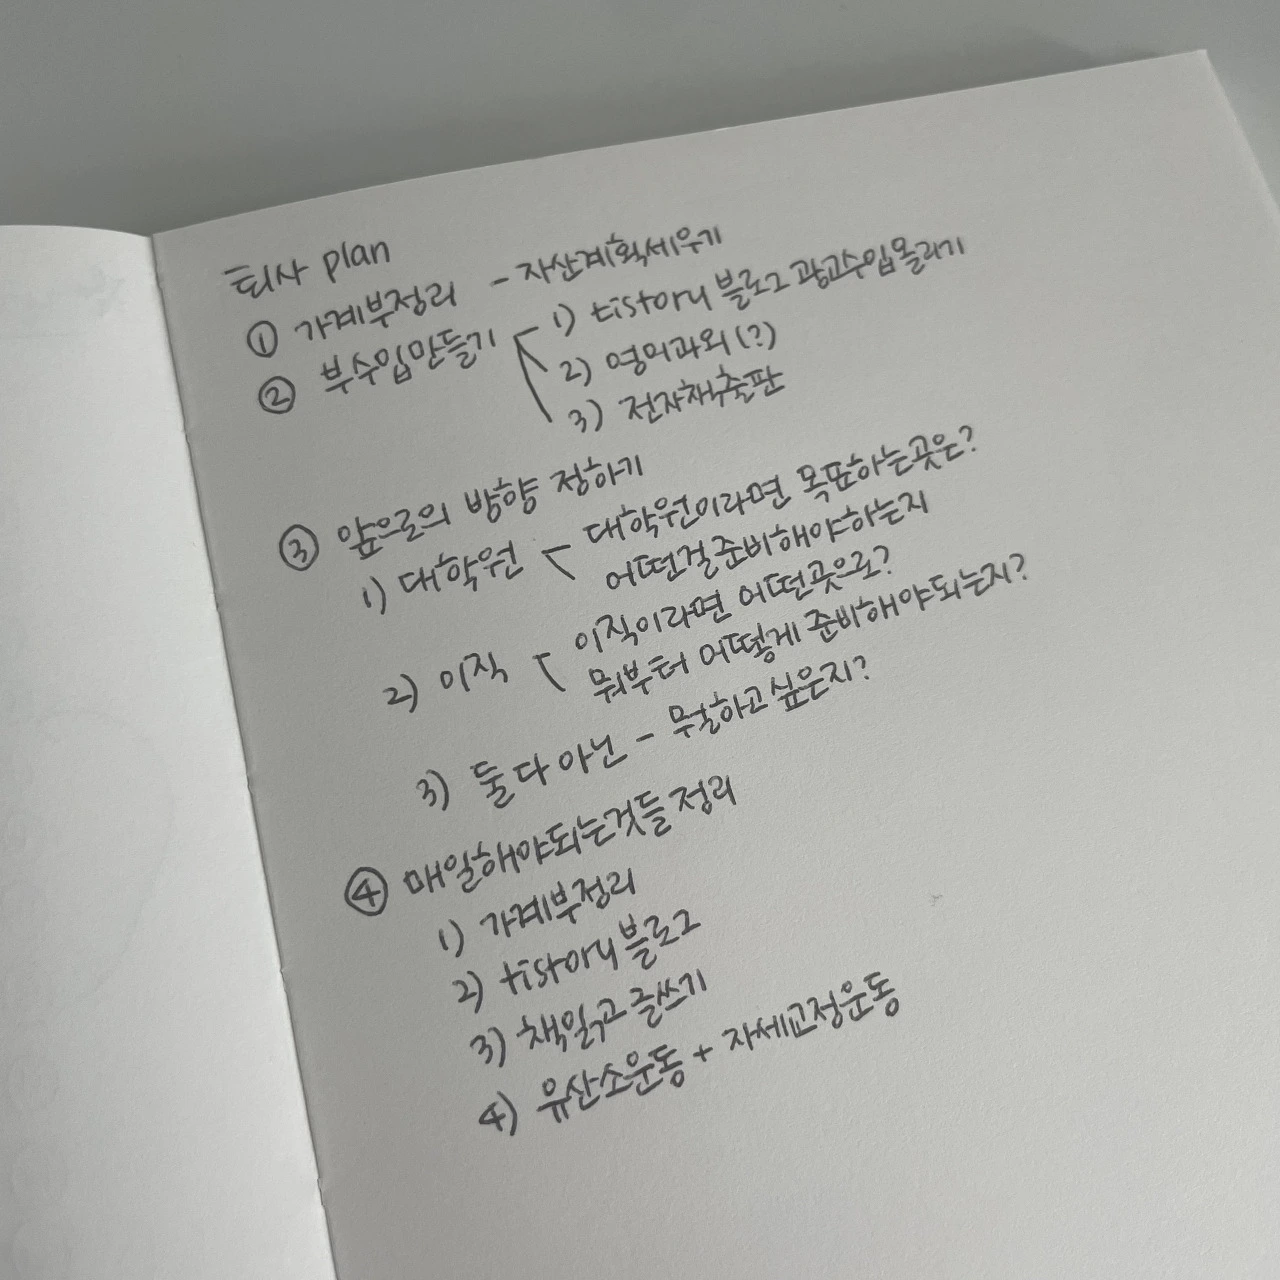 퇴사 plan
① 가계부정리 - 자산계획세우기
② 부수입만들기 1) tistory 블로그 광고수입올리기
2) 영어과외(?)
3) 전자책출판
③ 앞으로의 방향 정하기
1) 대학원 < 대학원이라면 목표하는곳은?
어떤걸준비해야하는지
2) 이직 이직이라면 어떤곳으로?
뭐부터 어떻게 준비해야되는지?
3) 둘다아닌 - 뭘하고싶은지?
④ 매일해야되는것들 정리
1) 가계부정리
2) tistory 블로그
3) 책읽고 글쓰기
4) 유산소운동 + 자세교정운동